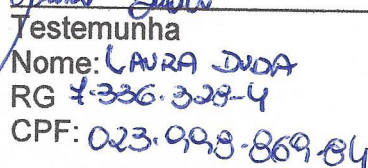 Testemunha
Nome: LAURA DUDA
RG 7.336.329-4
CPF: 023.998.869-84